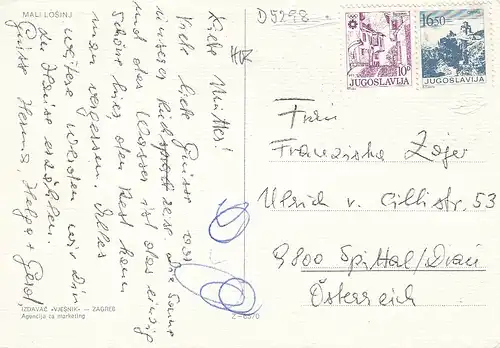 MALI LOŠINJ
D5298
Liebe Mutter!
Viele liebe Grüsse von
unserer
und das Wasser ist das einzig
Schöne hier, den Rest kann
man vergessen. Alles
weitere werden wir Dir
zu Hause erzählen.
Grüsse Herma, Helga + Gerd,
IZDAVAČ »VJESNIK« — ZAGREB
Agencija za marketing
10
JUGOSLAVIJA
16.50
JUGOSLAVIJA
Frau
Franziska Zojer
Ulrich v. Cillistr. 53
9800 Spittal/Drau
Österreich